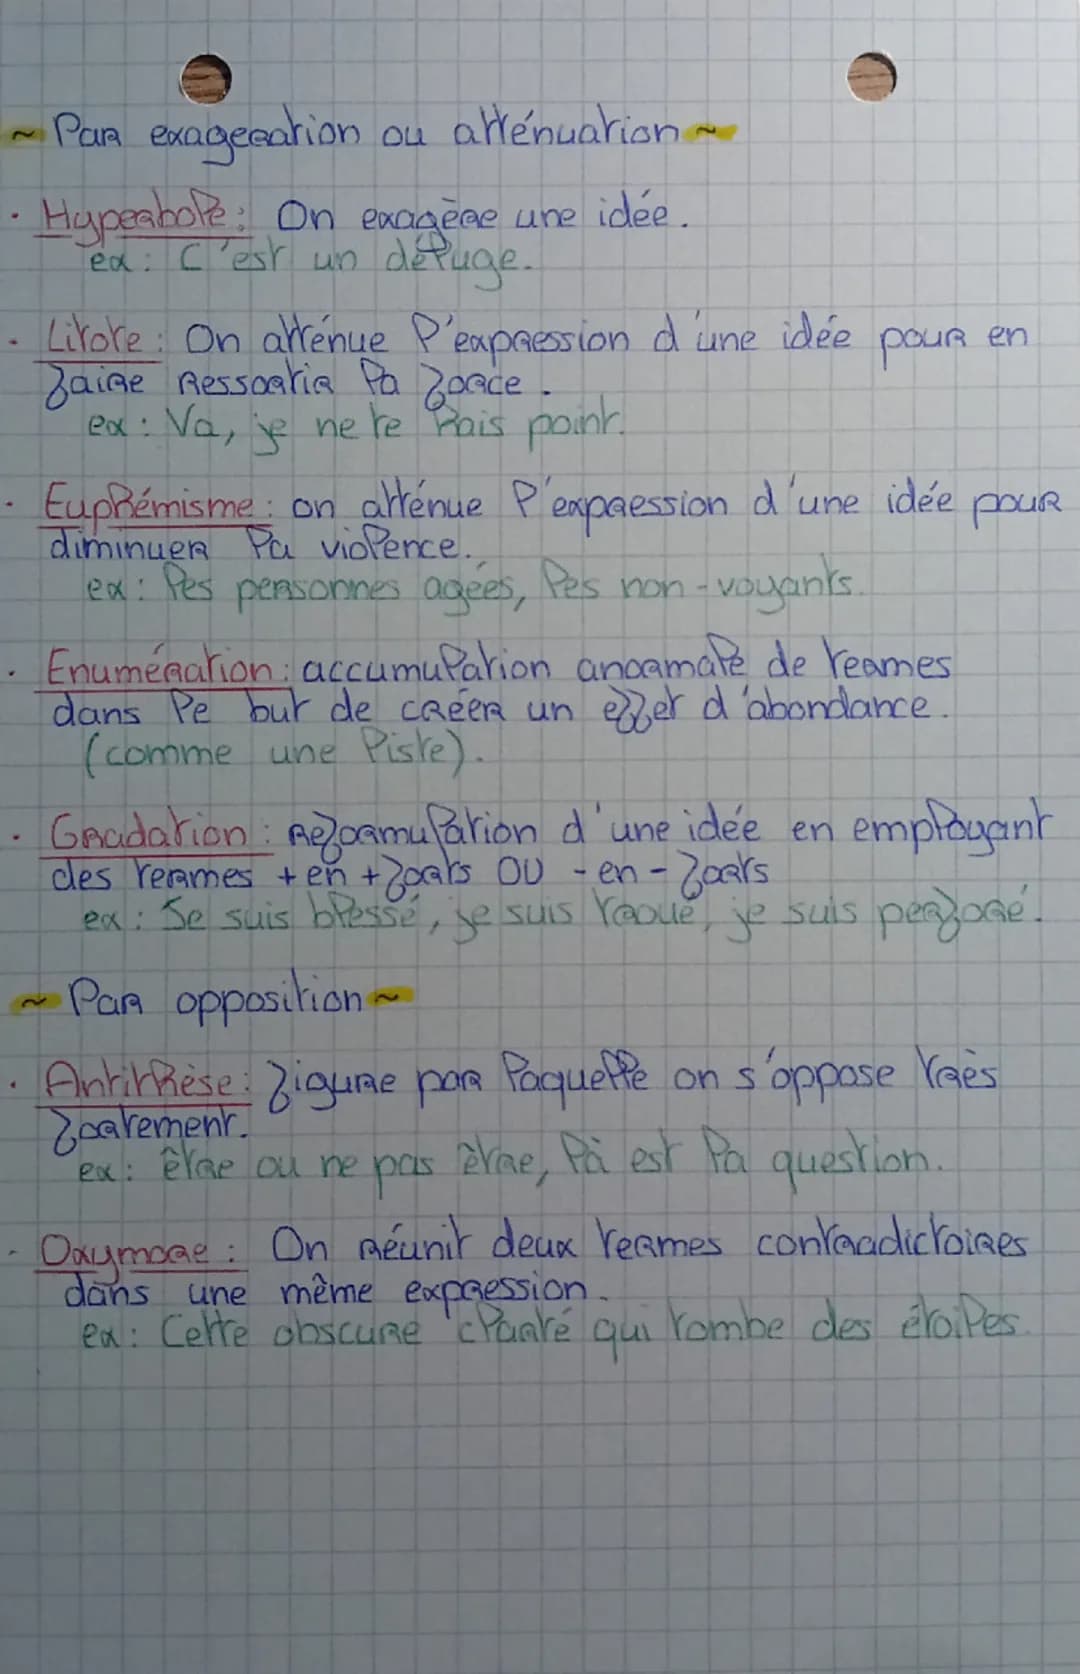 ~ Par exageration ou atténuation ~
· Hyperbole : On exagère une idée.
ex : C'est un déluge.
· Litote : On atténue l'expression d'une idée pour en
faire ressortir la force.
ex : Va, je ne te hais point.
· Euphémisme : on atténue l'expression d'une idée pour
diminuer la violence.
ex : les personnes agées, les non-voyants.
· Enumération : accumulation anormale de termes
dans le but de créer un effet d'abondance.
(comme une liste).
· Gradation : Reformulation d'une idée en employant
des termes + en + forts OU - en - forts
ex : Je suis blessé, je suis troué, je suis perforé.
~ Par opposition ~
· Antithèse : figure par laquelle on s'oppose très
fortement.
ex : être ou ne pas être, là est la question.
· Oxymore : On réunit deux termes contradictoires
dans une même expression.
ex : Cette obscure clarté qui tombe des étoiles.